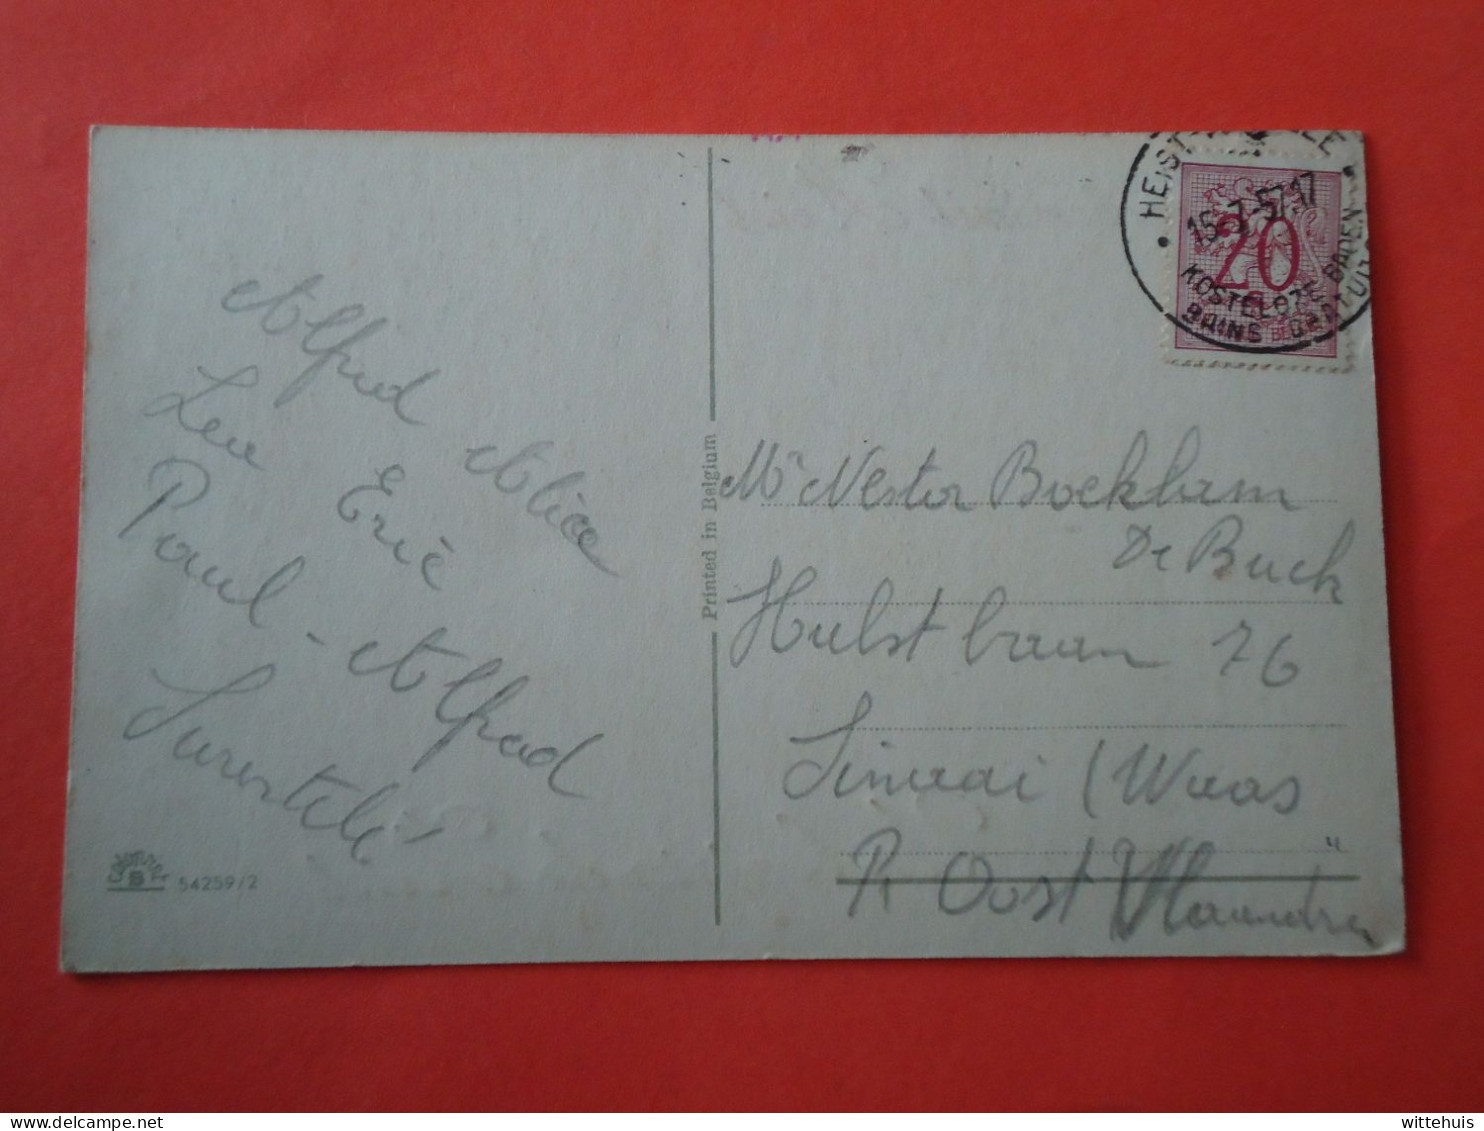 Alfred Alice
Lea Eric
Paul - Alfred
Printed in Belgium
54259/2
HEIST
15-7-57.17
KOSTELOZE BADEN
BAINS GRATUIT
20
Mr Nestor Boeklam
De Buck
Hulstbaan 76
Sinaai (Waas
Pr Oost Vlaandren
wittehuis